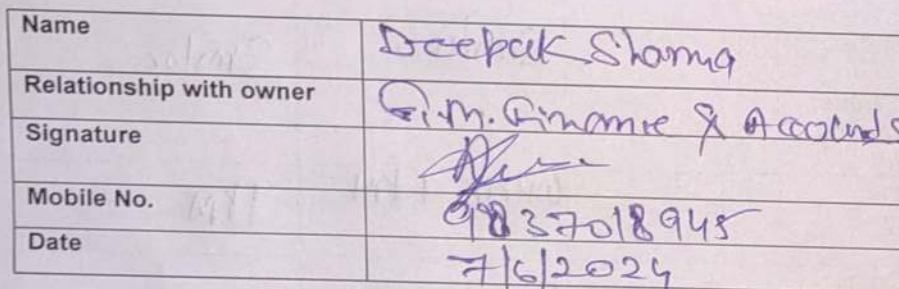 Name Deepak Sharma
Relationship with owner G.M. Finance & Accounts
Signature
Mobile No. 9837018945
Date 7/6/2024